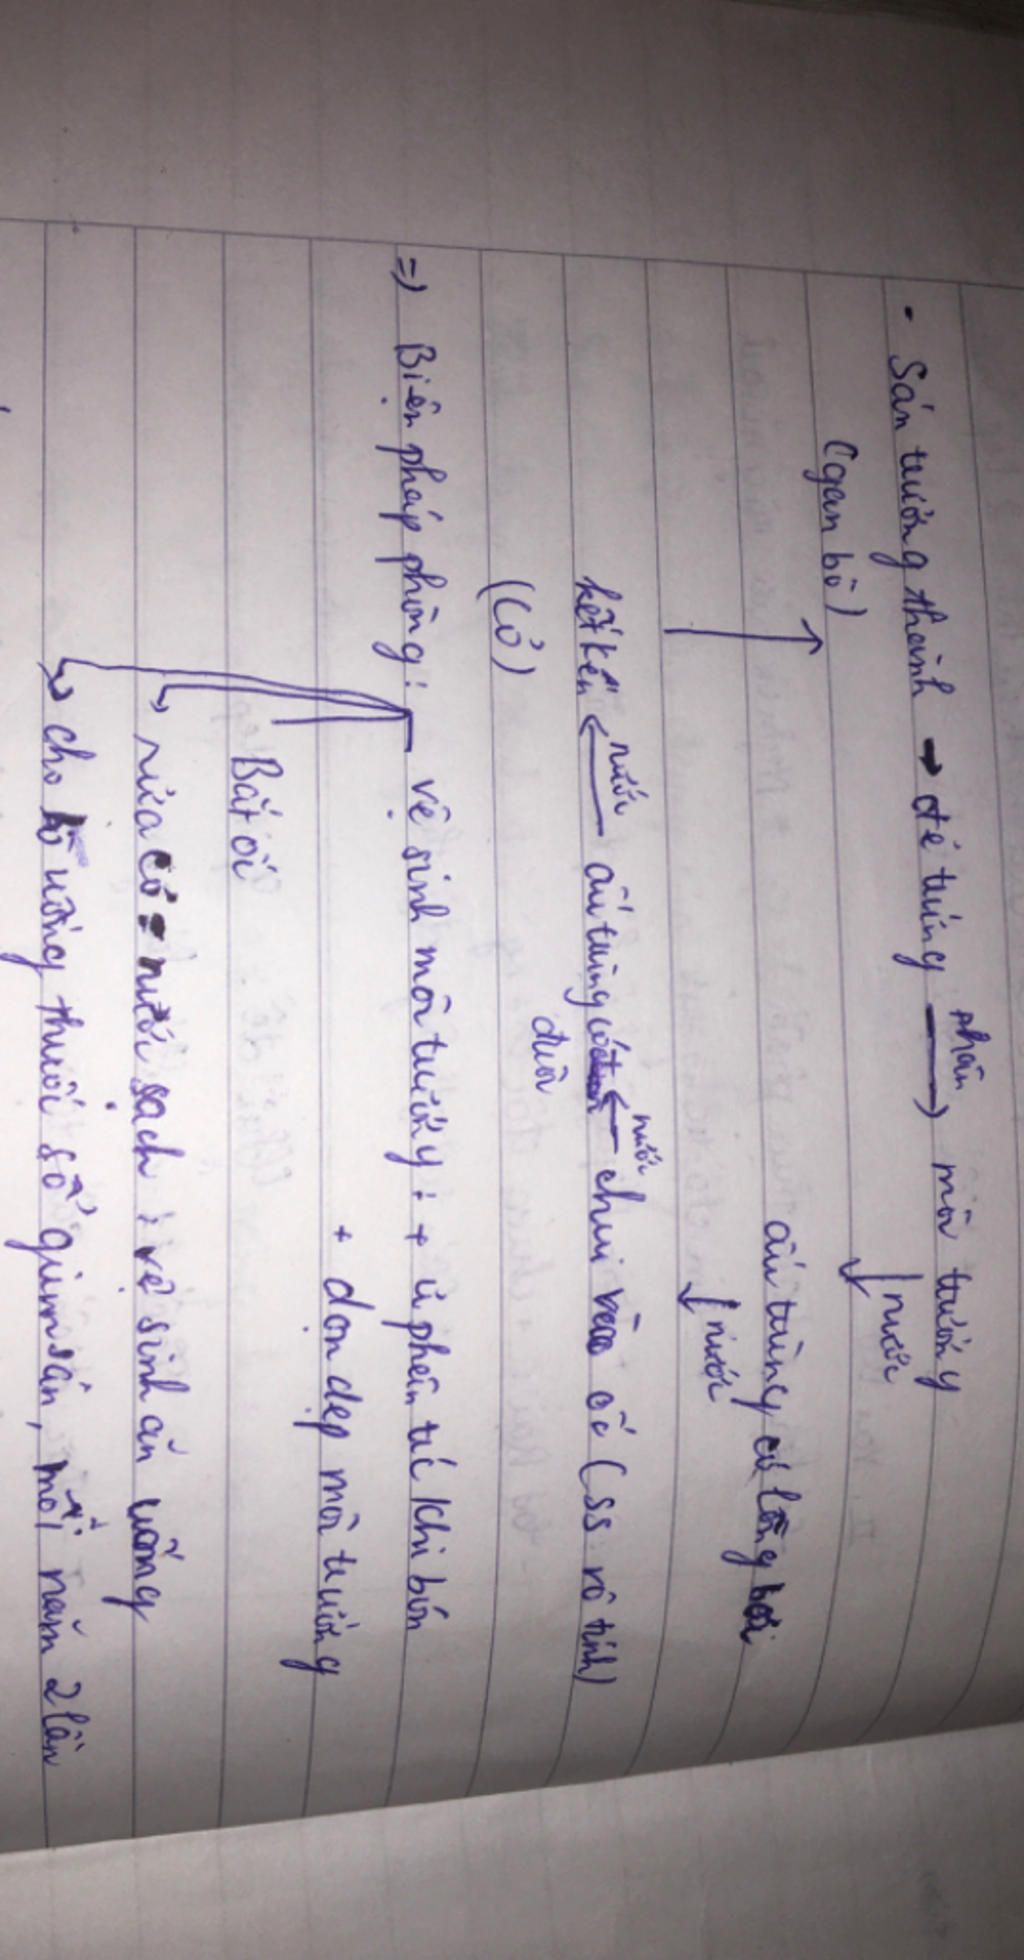 - Sán trưởng thành → đẻ trứng —phân→ môi trường
(gan bò)
↓ nước
ấu trùng có lông bơi
↓ nước
kết kén ←nước— ấu trùng có đuôi ←nước— chui vào ốc (SS vô tính)
(cỏ)
=> Biện pháp phòng: vệ sinh môi trường: + ủ phân trc khi bón
+ dọn dẹp môi trường
Bắt ốc
→ rửa cỏ - nước sạch : vệ sinh ăn uống
→ cho bò uống thuốc sổ giun sán, mỗi năm 2 lần